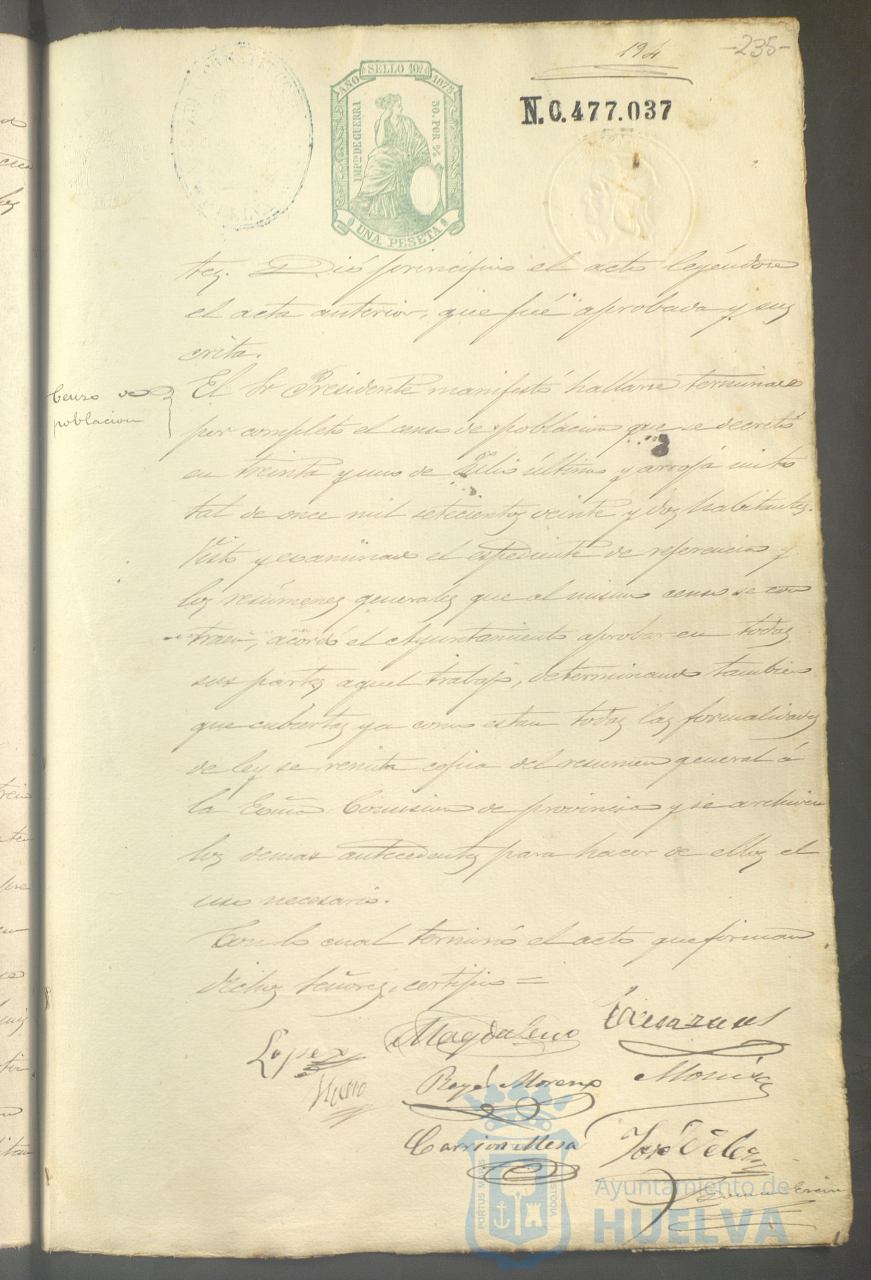 194
-235-
AÑO SELLO 10º 1875
IMPto DE GUERRA
50. POR %
UNA PESETA
N. 0.477.037
tes. Dió principio el acto leyéndose
el acta anterior, que fué aprobada y sus
crita.
Censo de
poblacion
El Sr Presidente manifestó hallarse terminado
por completo el censo de poblacion que se decretó
en treinta y uno de Julio último y arroja un to
tal de once mil setecientos veinte y dos habitantes.
Visto y examinado el espediente de referencia y
los resúmenes generales que al mismo censo se con
traen, acordó el Ayuntamiento aprobar en todas
sus partes aquel trabajo, determinando tambien
que cubiertas ya como estan todas las formalidades
de ley se remita copia del resumen general á
la Exma Comision de provincia y se archiven
los demas antecedentes para hacer de ellos el
uso necesario.
Con lo cual terminó el acto que firman
dichos Señores, certifico =
Lopez
Magdaleno
Rey Moreno
Carrion Mesa
José
PORTUS MARIS
CUSTODIA
Ayuntamiento de
HUELVA